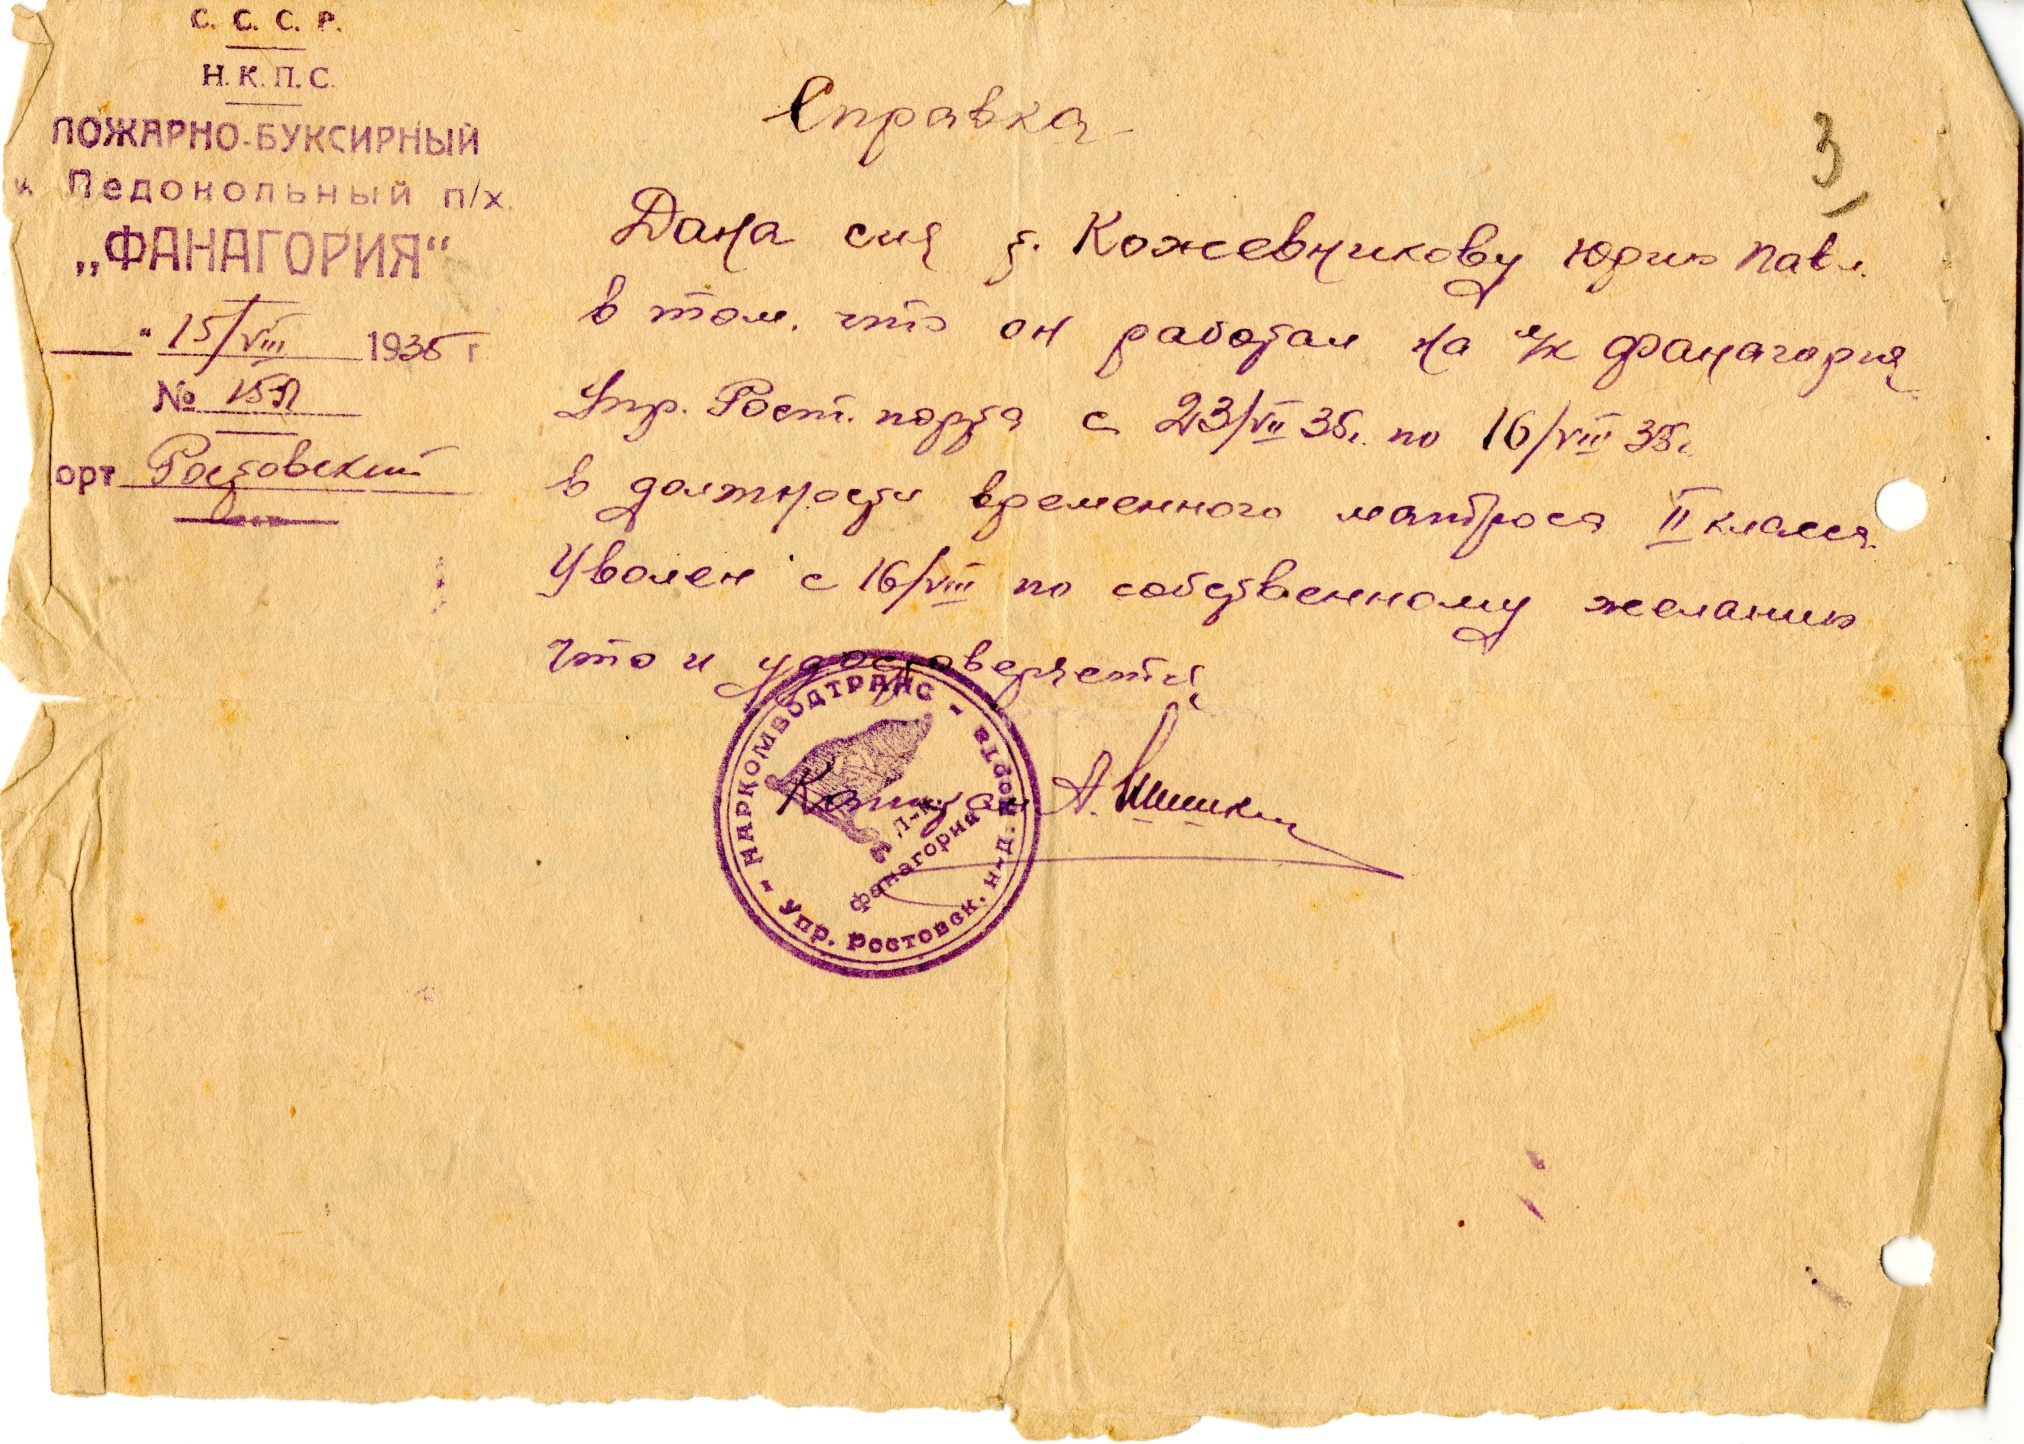 С. С. С. Р.
Н. К. П. С.
ПОЖАРНО-БУКСИРНЫЙ
и Ледокольный п/х.
„ФАНАГОРИЯ“
" 15/VIII 1935 г.
№
орт Ростовский
Справка
3
Дана сия т. Кожевникову Юрию Павл.
в том, что он работал на л/к Фанагория
Упр. Рост. порта с 23/VII 35г. по 16/VIII 35г.
в должности временного матроса II класса.
Уволен с 16/VIII по собственному желанию
что и удостоверяется
Капитан А. Шишкин
НАРКОМВОДТРАНС – Упр. Ростовск. н-Д. порта –
Л-К.
Фанагория